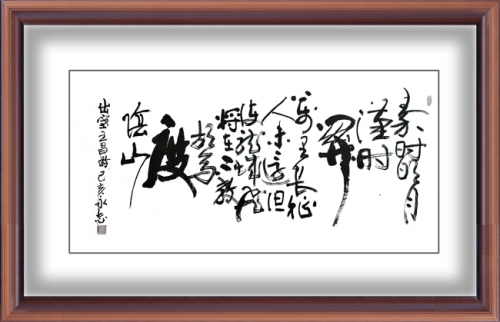 秦时明月
漢时
關
万里长征
人未还但
使龍城飛
将在不教
胡马
度
陰山
出塞王昌龄 己亥永志